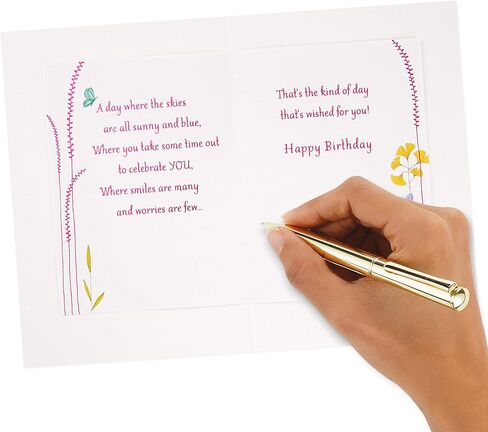 A day where the skies
are all sunny and blue,
Where you take some time out
to celebrate YOU,
Where smiles are many
and worries are few...
That's the kind of day
that's wished for you!
Happy Birthday